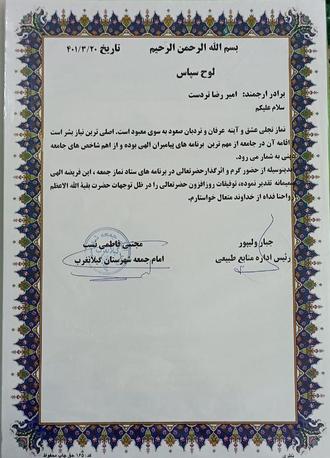 بسم الله الرحمن الرحیم
تاریخ ۴۰۱/۳/۲۰
لوح سپاس
برادر ارجمند: امیر رضا تردست
سلام علیکم
نماز تجلی عشق و آینه عرفان و نردبان صعود به سوی معبود است. اصلی ترین نیاز بشر است
اقامه آن در جامعه از مهم ترین برنامه های پیامبران الهی بوده و از اهم شاخص های جامعه
دینی به شمار می رود.
بدینوسیله از حضور گرم و اثرگذار حضرتعالی در برنامه های ستاد نماز جمعه ، این فریضه الهی
صمیمانه تقدیر نموده، توفیقات روزافزون حضرتعالی را در ظل توجهات حضرت بقیة الله الاعظم
ارواحنا فداه از خداوند متعال خواستارم.
جبار ولیپور
رئیس اداره منابع طبیعی
مجتبی فاطمی نسب
امام جمعه شهرستان گیلانغرب
کد: ۱۶۵ حق چاپ محفوظ